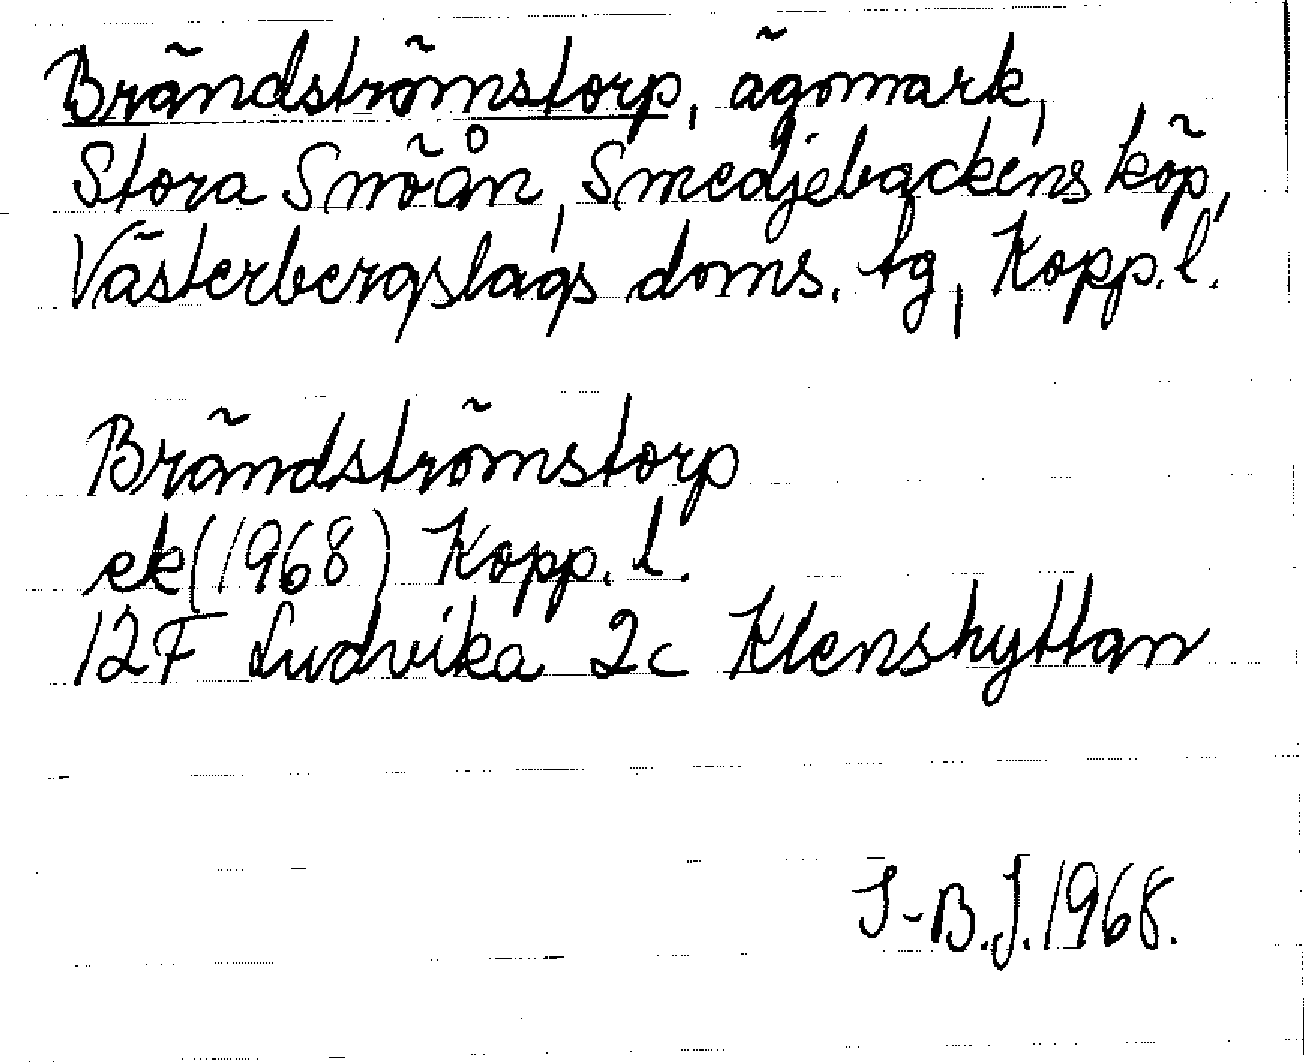 Brändströmstorp, ägomark,
Stora Snöån, Smedjebackens köp,
Västerbergslags doms. tg, Kopp. l.
Brändströmstorp
ek (1968) Kopp. l.
12F Ludvika 2c Klenshyttan
I-B.J. 1968.